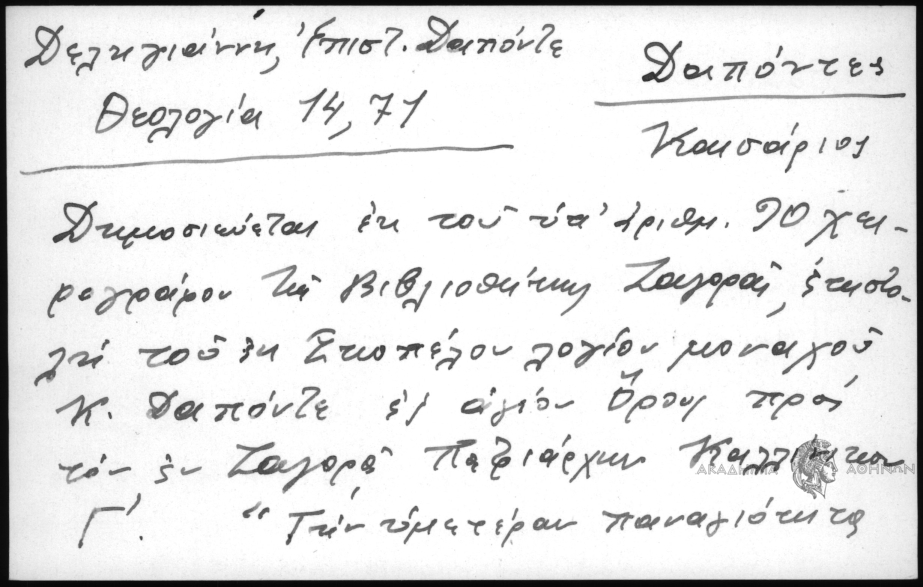 Δεληγιάννη, Ἐπιστ. Δαπόντε
Θεολογία 14, 71
Δαπόντες
Καισάριος
Δημοσιεύεται ἐκ τοῦ ὑπ' ἀριθμ. 90 χει-
ρογράφου τῆς Βιβλιοθήκης Ζαγορᾶς, ἐπιστο-
λὴ τοῦ ἐκ Σκοπέλου λογίου μοναχοῦ
Κ. Δαπόντε ἐξ ἁγίου Ὄρους πρὸς
τὸν ἐν Ζαγορᾷ Πατριάρχην Καλλίνικον
Γ'. "Τὴν ὑμετέραν παναγιότητα
ΑΚΑΔΗΜΙΑ ΑΘΗΝΩΝ